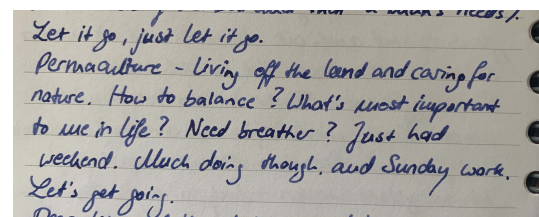 needs).
Let it go, just let it go.
Permaculture - Living off the land and caring for
nature. How to balance? What's most important
to me in life? Need breather? Just had
weekend. Much doing though, and Sunday work.
Let's get going.